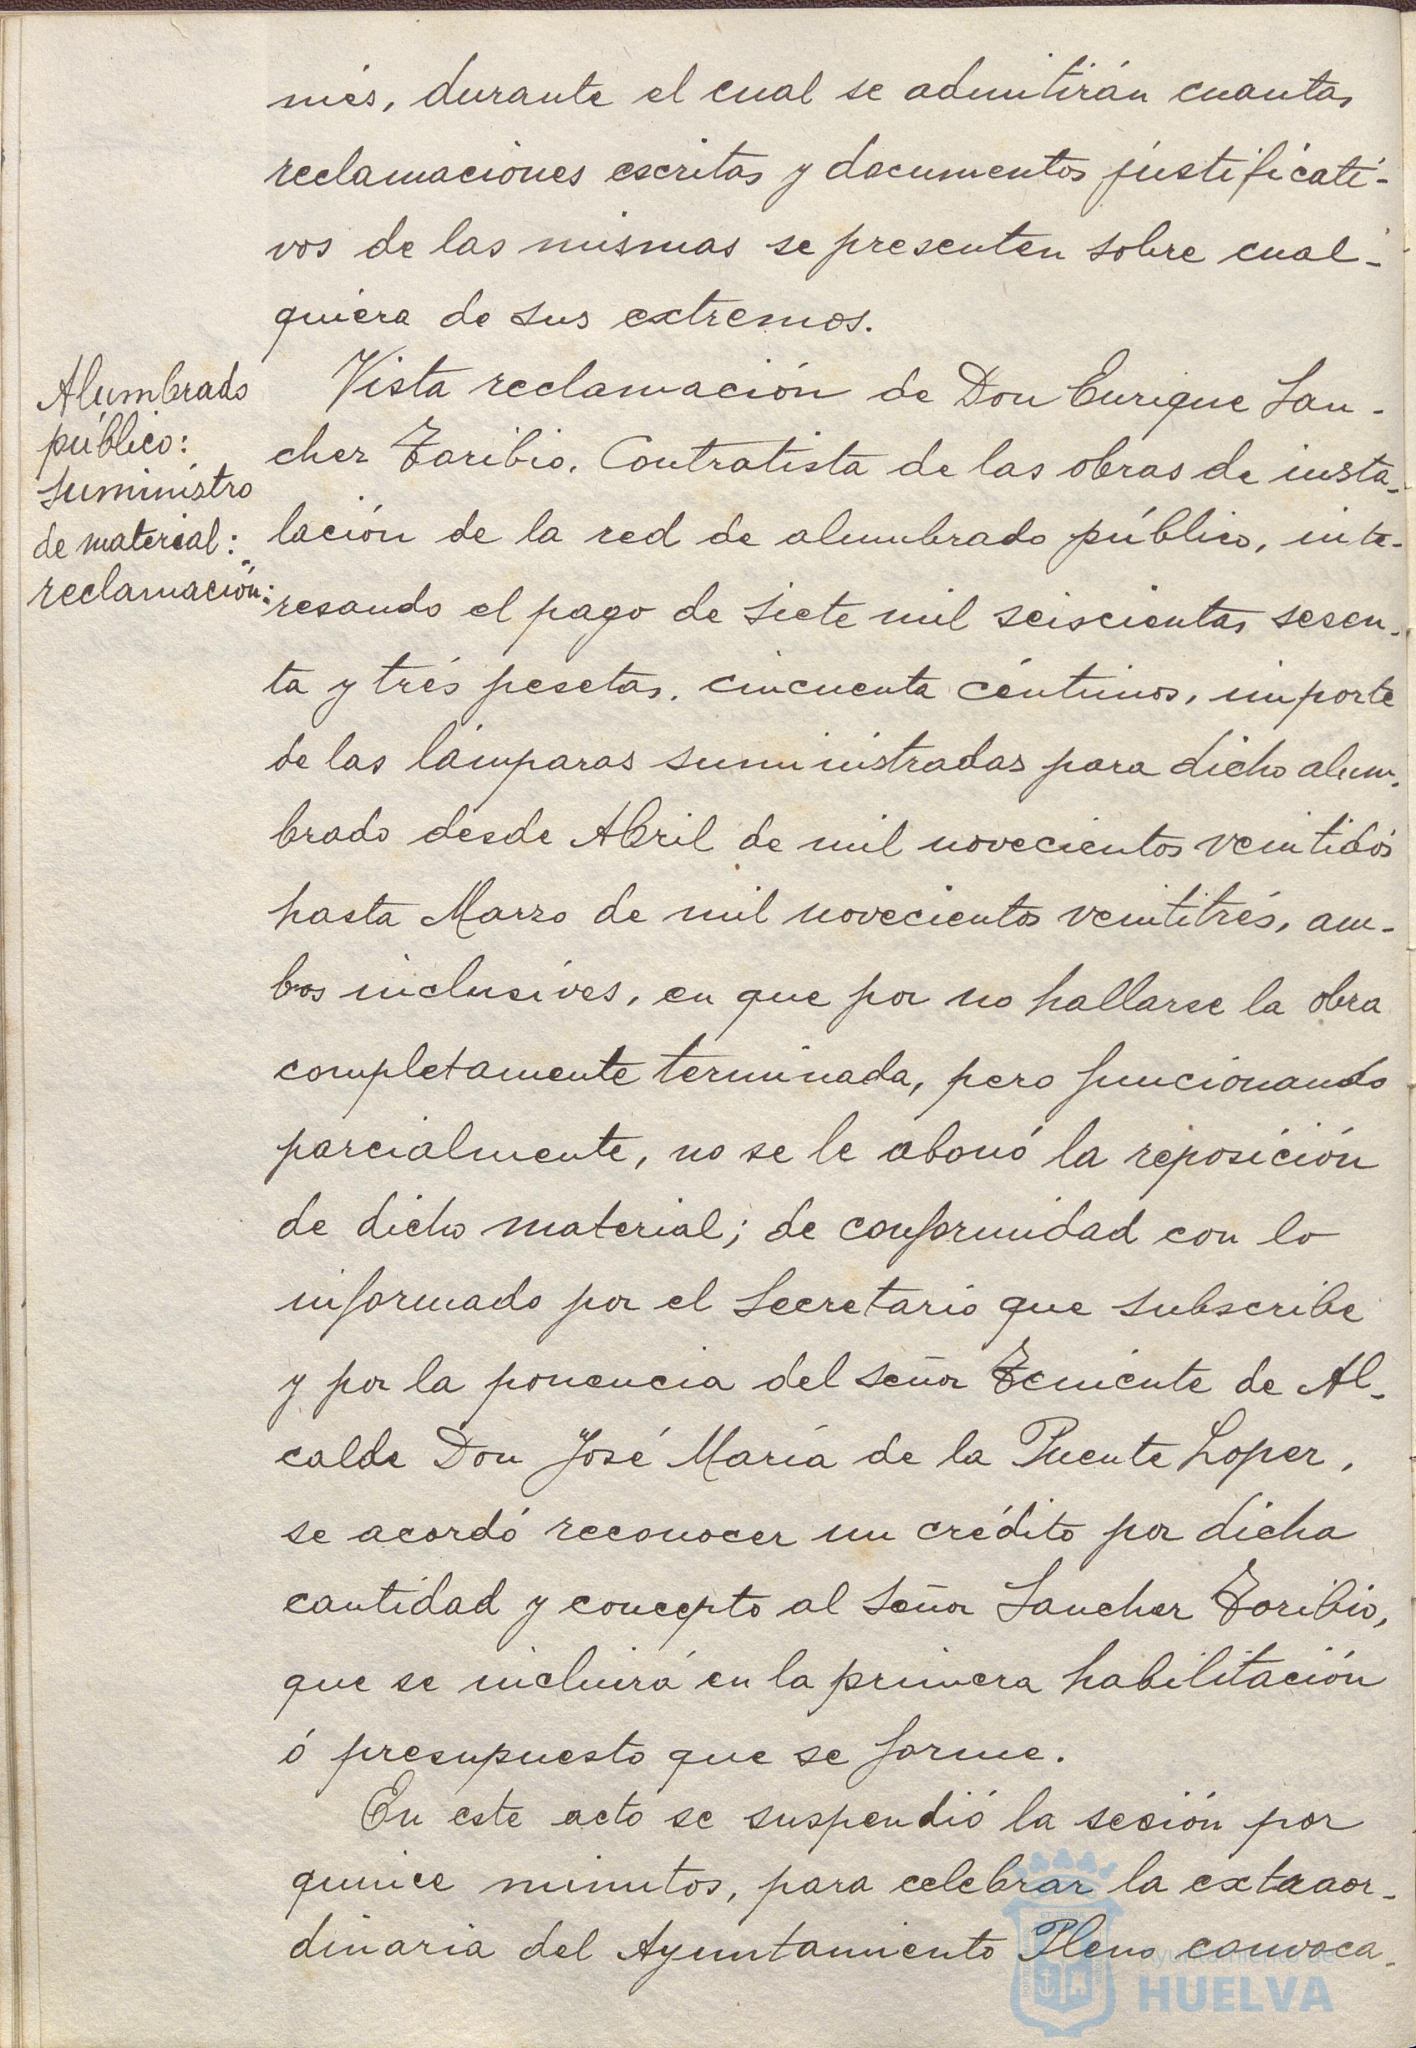 més, durante el cual se admitirán cuantas
reclamaciones escritas y documentos justificati-
vos de las mismas se presenten sobre cual-
quiera de sus extremos.
Alumbrado
público:
suministro
de material:
reclamación:
Vista reclamación de Don Enrique San-
chez Toribio, Contratista de las obras de insta-
lación de la red de alumbrado público, inte-
resando el pago de siete mil seiscientas sesen-
ta y trés pesetas, cincuenta céntimos, importe
de las lámparas suministradas para dicho alum-
brado desde Abril de mil novecientos veintidós
hasta Marzo de mil novecientos veintitrés, am-
bos inclusives, en que por no hallarse la obra
completamente terminada, pero funcionando
parcialmente, no se le abonó la reposición
de dicho material; de conformidad con lo
informado por el Secretario que subscribe
y por la ponencia del señor Teniente de Al-
calde Don José María de la Puente Lopez,
se acordó reconocer un crédito por dicha
cantidad y concepto al Señor Sanchez Toribio,
que se incluirá en la primera habilitación
ó presupuesto que se forme.
En este acto se suspendió la sesión por
quince minutos, para celebrar la extraor-
dinaria del Ayuntamiento Pleno convoca-
Ayuntamiento de
HUELVA